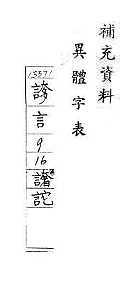 補充資料
異體字表
13571
謗
言
9
16
諸
詑